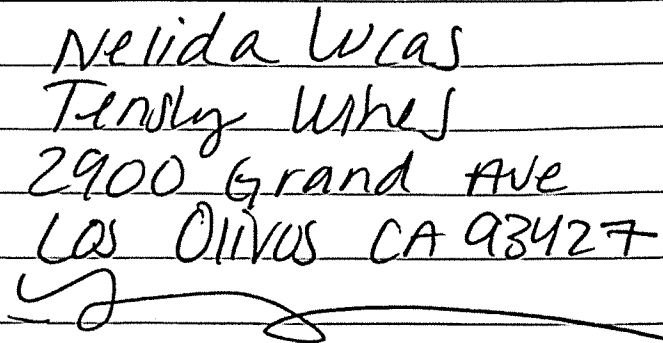 Nelida Lucas
Tensly Wines
2900 Grand Ave
Los Olivos CA 93427